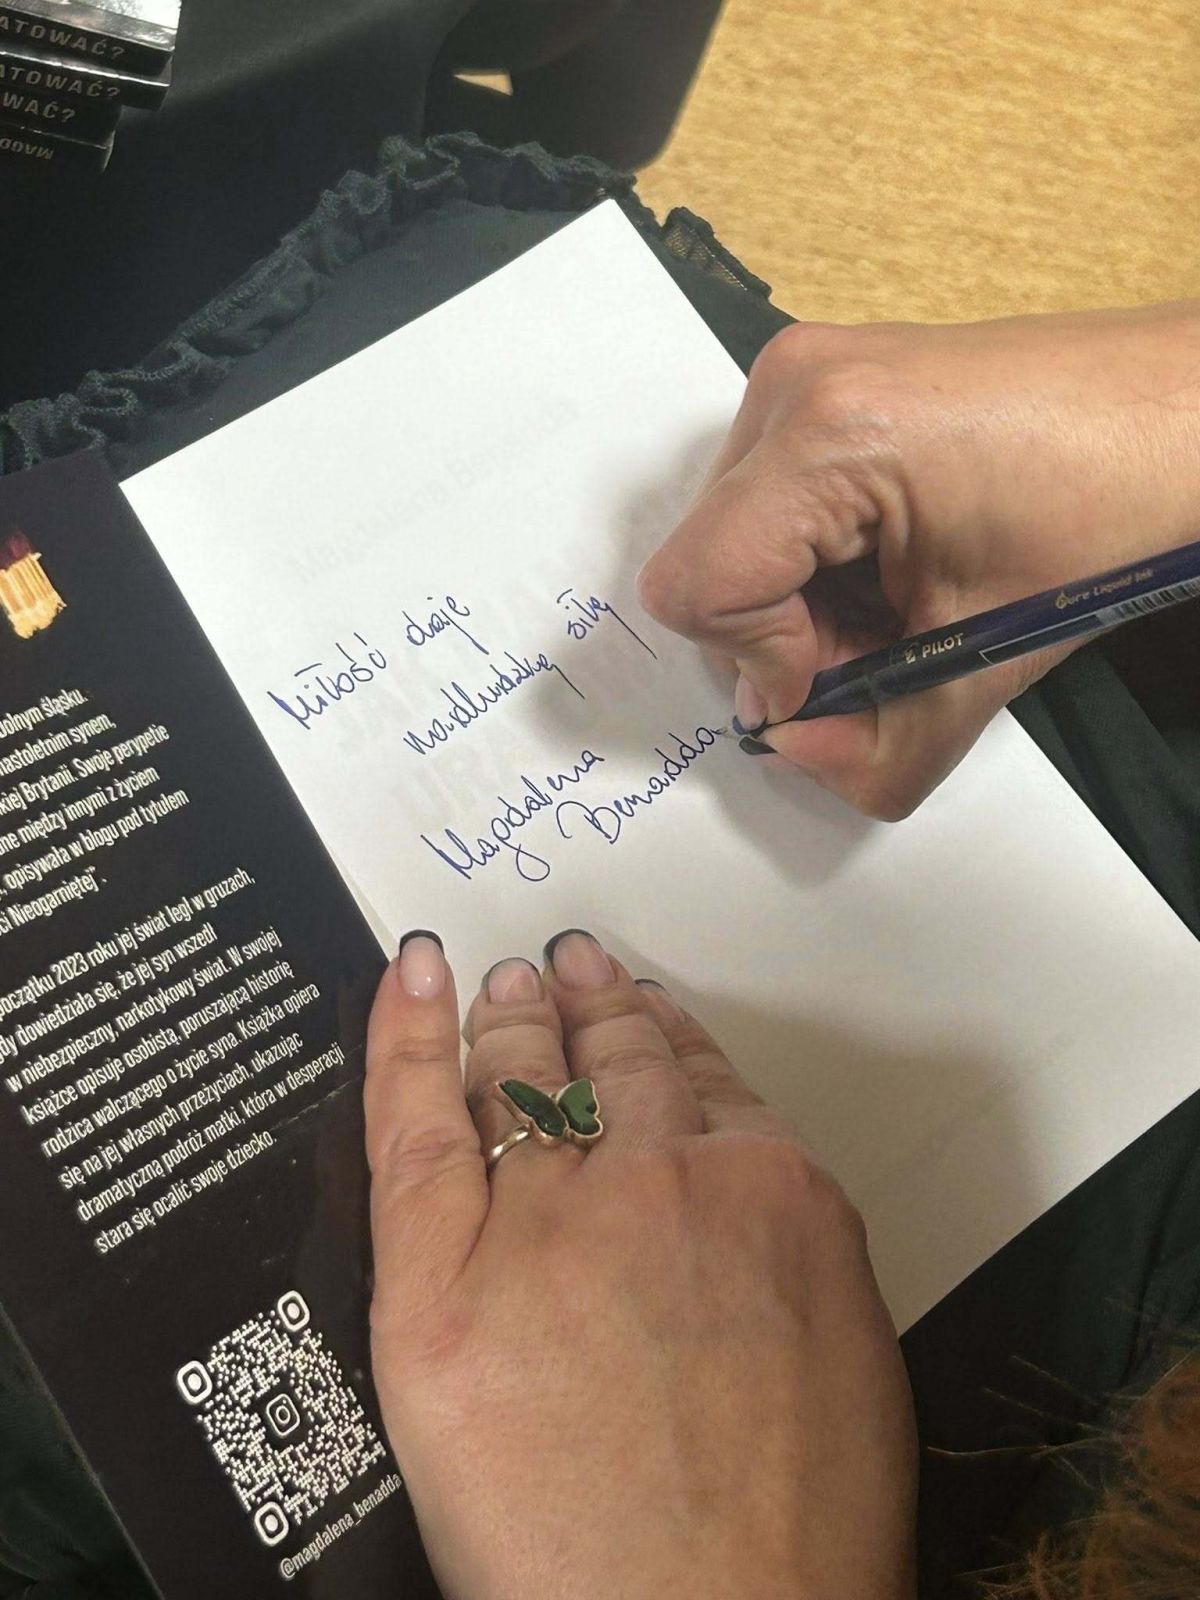 ATOWAĆ?
ATOWAĆ?
WAĆ?
MAGD
Miłość daje
nadludzką siłę
Magdalena
Benadda
PILOT
Pure Liquid Ink
olnym śląsku.
nastoletnim synem,
kiej Brytanii. Swoje perypetie
ne między innymi z życiem
, opisywała w blogu pod tytułem
ci Nieogarniętej".
początku 2023 roku jej świat legł w gruzach,
dy dowiedziała się, że jej syn wszedł
w niebezpieczny, narkotykowy świat. W swojej
książce opisuje osobistą, poruszającą historię
rodzica walczącego o życie syna. Książka opiera
się na jej własnych przeżyciach, ukazując
dramatyczną podróż matki, która w desperacji
stara się ocalić swoje dziecko.
@magdalena_benadda